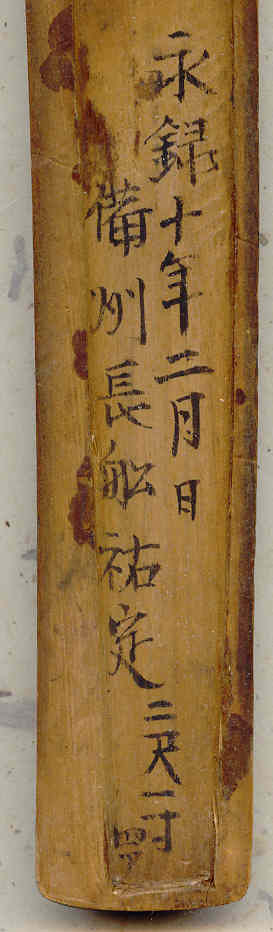 永録十年二月日
備州長船祐定
二尺一寸